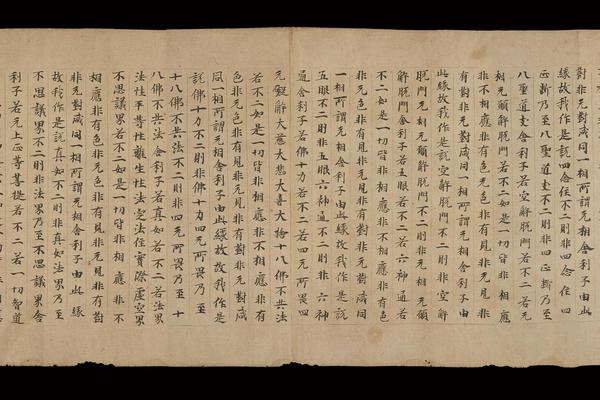 對非无對咸同一相所謂无相舍利子由此
緣故我作是説四念住不二則非四念住四
正斷乃至八聖道支不二則非四正斷乃至
八聖道支舍利子若空解脫門若不二若无
相无願解脫門若不二如是一切皆非相應
非不相應非有色非无色非有見非无見非
有對非无對咸同一相所謂无相舍利子由
此緣故我作是説空解脫門不二則非空解
脫門无相无願解脫門不二則非无相无願
解脫門舍利子若五眼若不二若六神通若
不二如是一切皆非相應非不相應非有色
非无色非有見非无見非有對非无對咸同
一相所謂无相舍利子由此緣故我作是説
五眼不二則非五眼六神通不二則非六神
通舍利子若佛十力若不二若四无所畏四
无礙解大慈大悲大喜大捨十八佛不共法
若不二如是一切皆非相應非不相應非有
色非无色非有見非无見非有對非无對咸
同一相所謂无相舍利子由此緣故我作是
説佛十力不二則非佛十力四无所畏乃至
十八佛不共法不二則非四无所畏乃至十
八佛不共法舍利子若真如若不二若法界
法性平等性離生性法定法住實際虛空界
不思議界若不二如是一切皆非相應非不
相應非有色非无色非有見非无見非有對
非无對咸同一相所謂无相舍利子由此緣
故我作是説真如不二則非真如法界乃至
不思議界不二則非法界乃至不思議界舍
利子若无上正等菩提若不二若一切智道